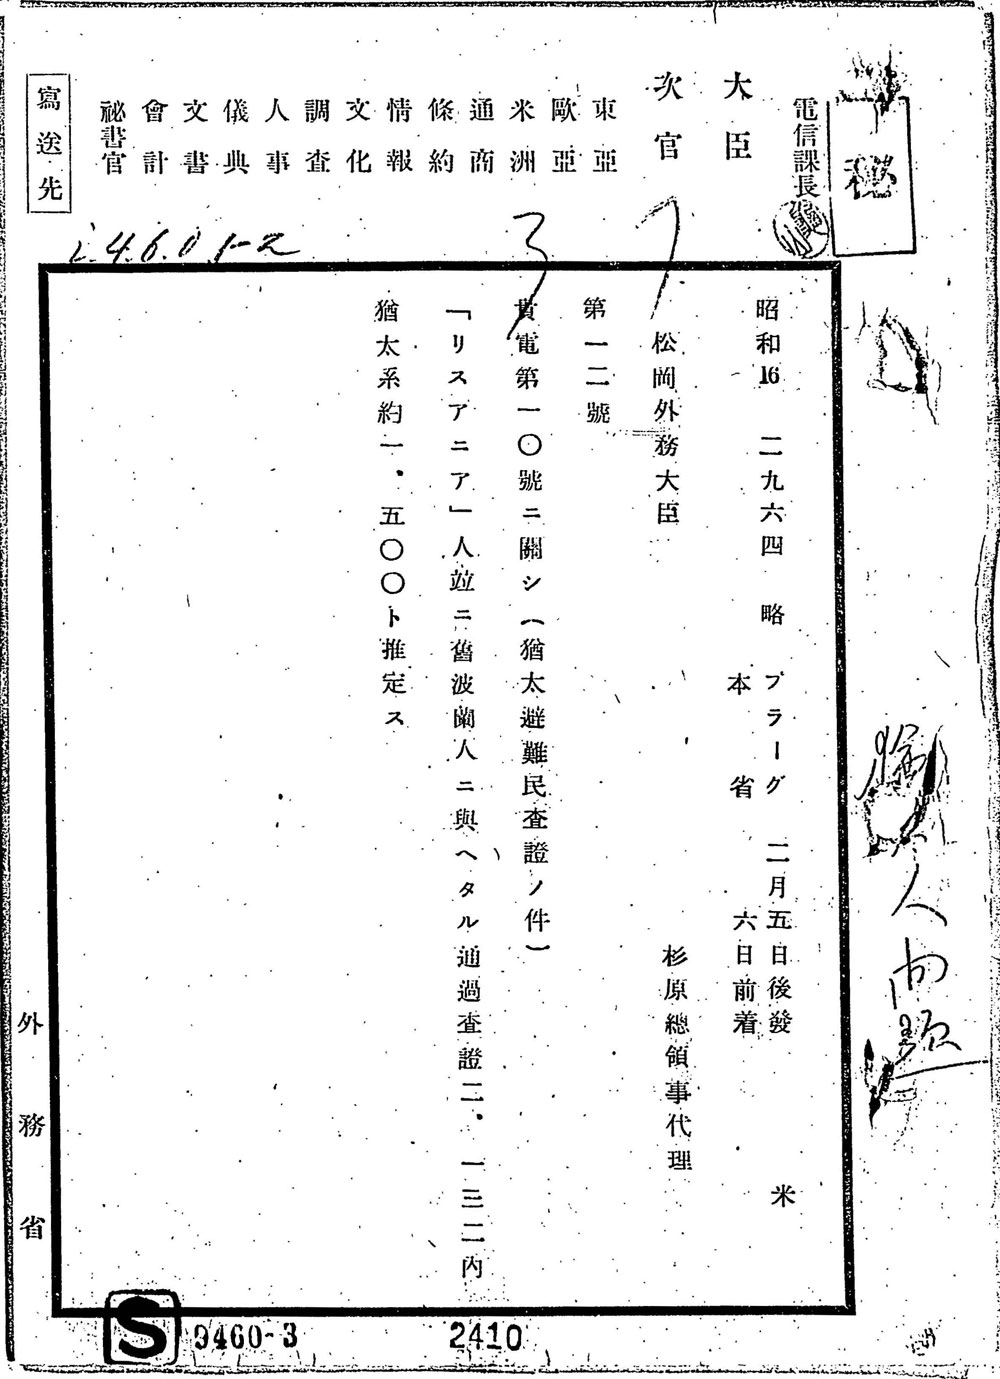 秘
電信課長
大臣
次官
東亞
歐亞
米洲
通商
條約
情報
文化
調査
人事
儀典
文書
會計
祕書官
寫送先
昭和16 二九六四 略 プラーグ 二月五日後發 米
本省 六日前着
松岡外務大臣 杉原總領事代理
第一二號
貴電第一〇號ニ關シ(猶太避難民査證ノ件)
「リスアニア」人竝ニ舊波蘭人ニ與ヘタル通過査證二.一三二內
猶太系約一.五〇〇ト推定ス
人問題
外務省
S 9460-3 2410